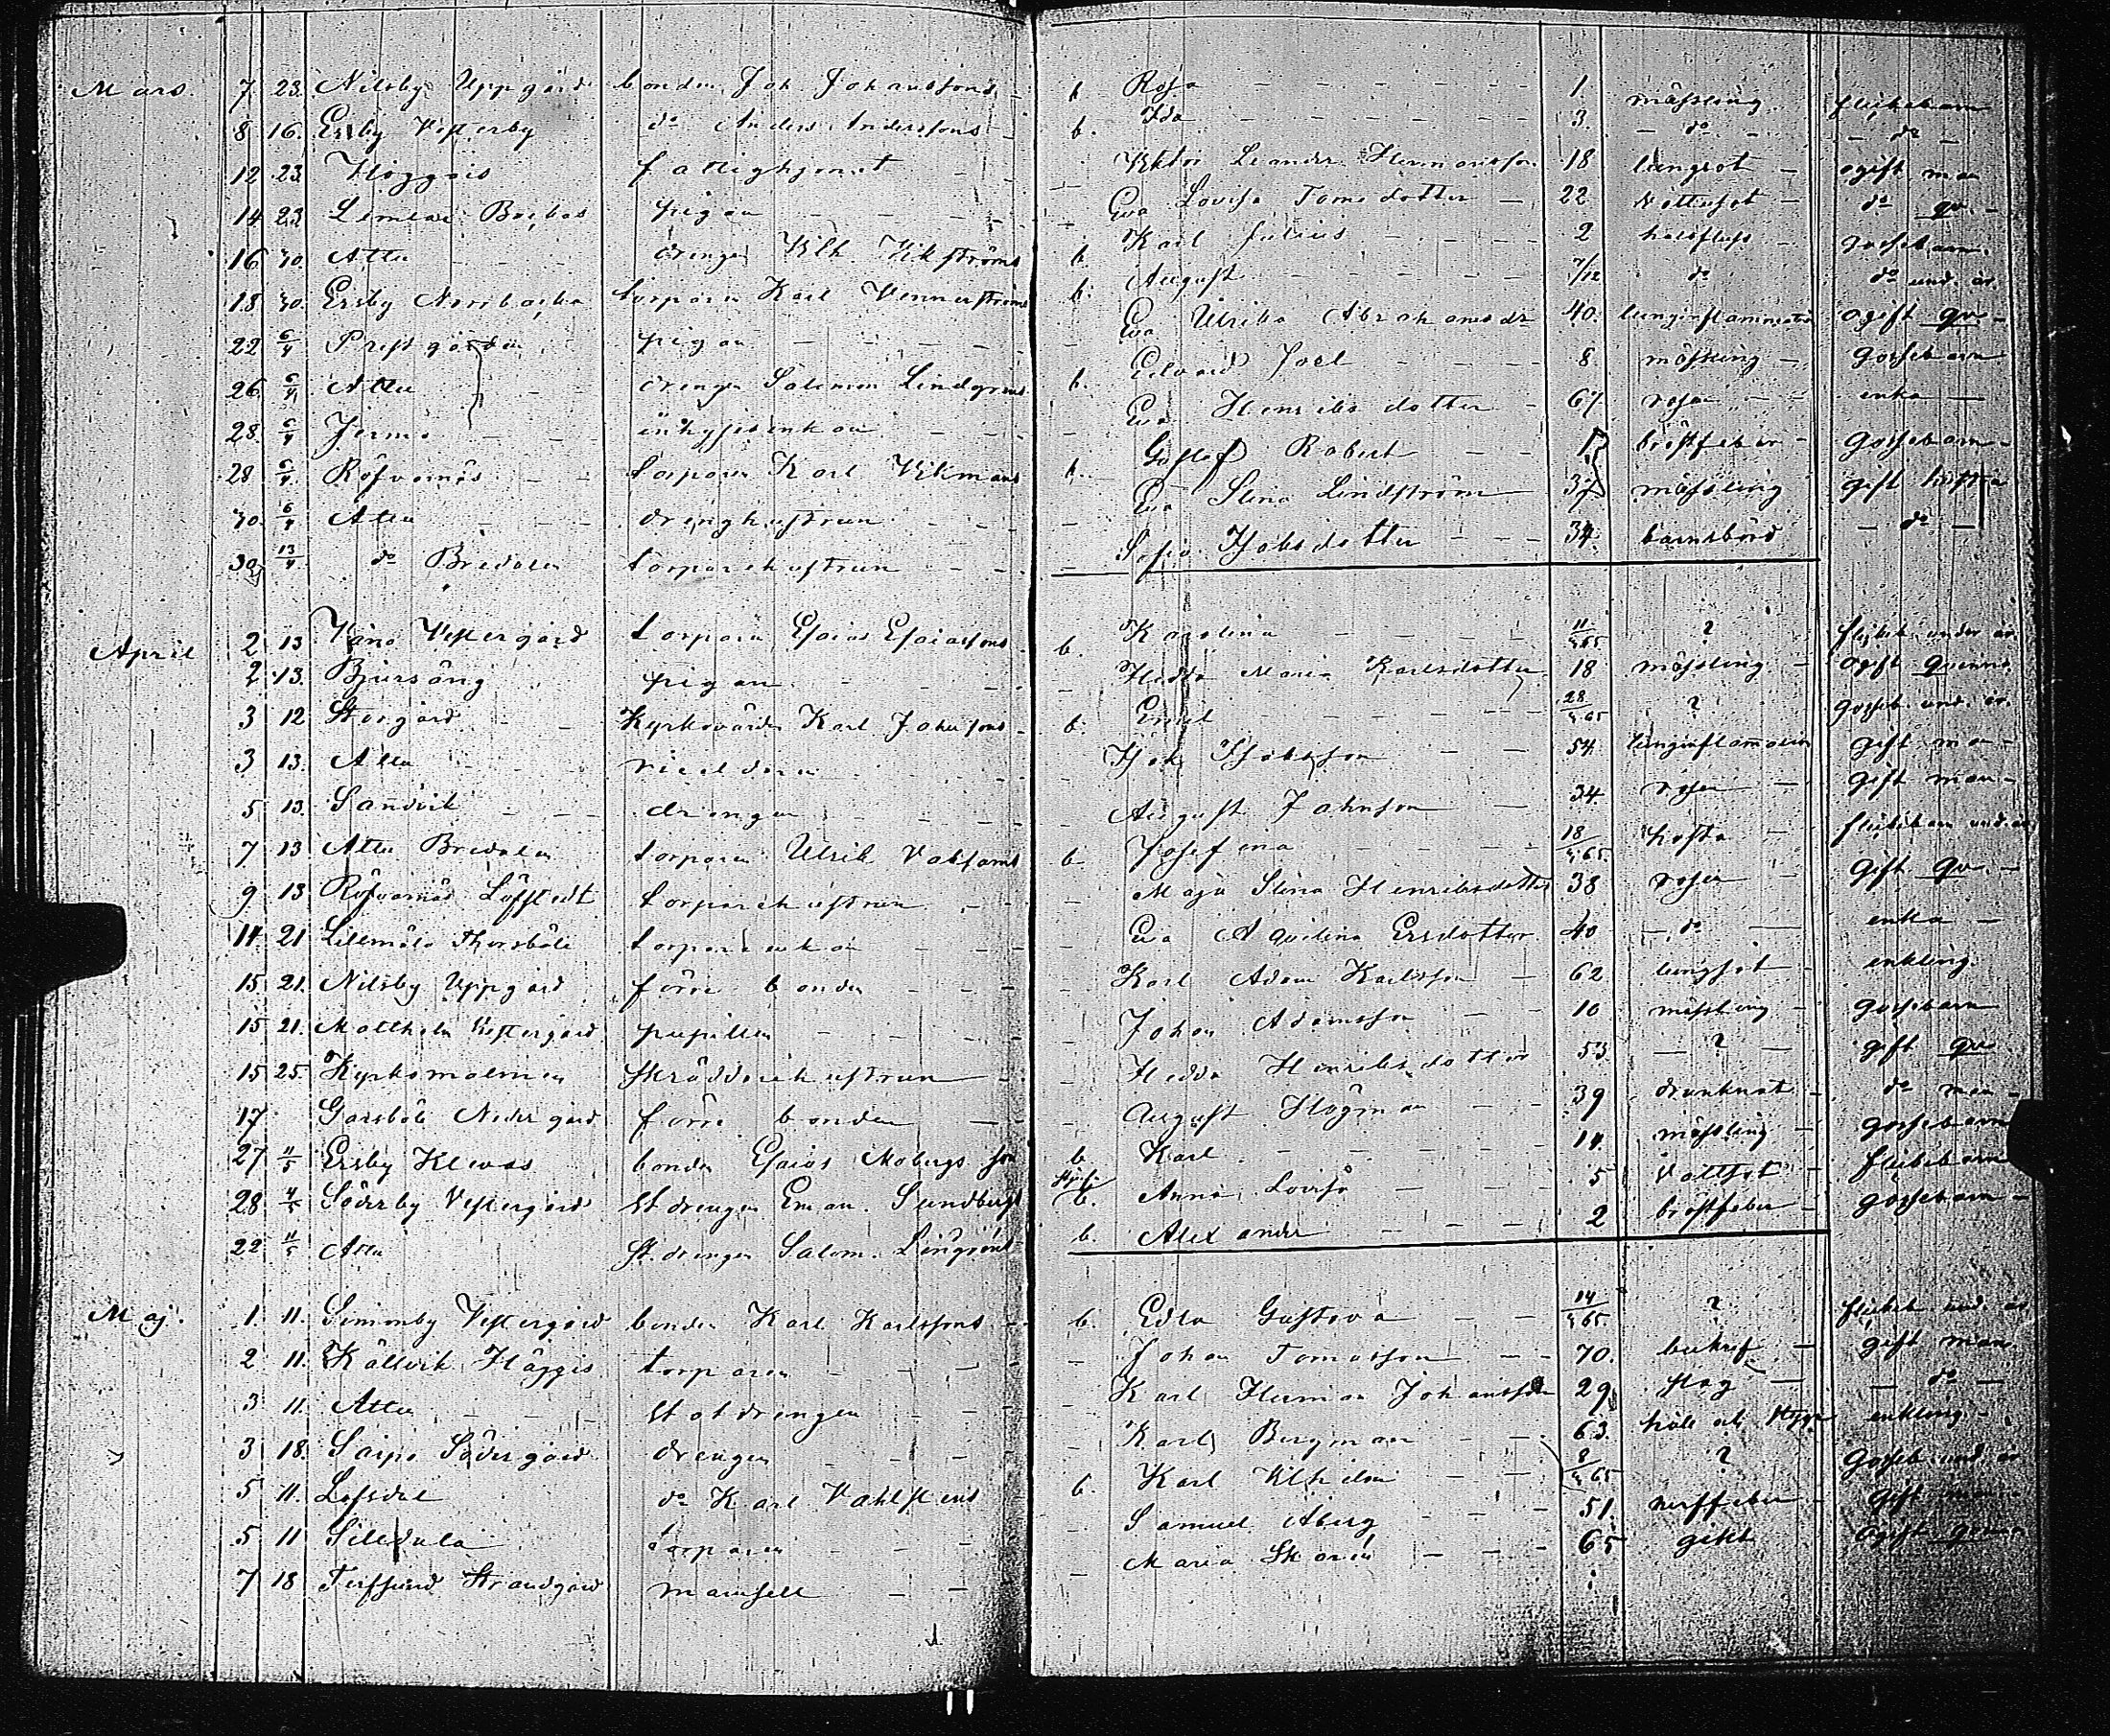 Mars. 7 23. Nilsby Uppgård bonden Joh Johanssons b Rosa 1. mässling flickebarn
8 16. Ersby Vesterby do Anders Anderssons b. Ida 3. do do
12 23 fattighjonet Viktor Leander Hermansson 18 lungsot ogift man
14 23 pigan Eva Lovisa Tomsdotter 22 Vattusot do qv.
16 30. Attu drengen Vilh. Vikströms b. Karl Julius 2 halsfluss gossebarn
18 30. Ersby Norrbacka torparen Karl Vennerströms b. August 7/12 do do und. år
22 6/4 Prestgården pigan Eva Ulrika Abrahamsdr 40. lunginflammation ogift qv.
26 6/4 Attu drengen Salomon Lindgrens b. Edvard Joel 8 mässling gossebarn
28. 6/4 Jermo inhysisenkan Eva Henriksdotter 67 rosen enka
28 6/4 Röfvarnäs torparen Karl Vikmans b. Gustaf Robert 1. bröstfeber gossebarn
30. 6/4 Attu drenghustrun Eva Stina Lindström 37 mässling gift hustru
30 13/4 do Bredalen torparehustrun Sofia Jakobsdotter 34. barnsbörd do
April 2 13 Vånå Vestergård torparen Esaias Esaiassons b. Karolina 11/4 65 ? flickeb. under år.
2 13. Bjursäng pigan Hedda Maria Karlsdotter 18 mässling ogift qvinna
3 12 Storgård Kyrkovärden Karl Johnssons b. Emil 28/4 65 ? gosseb. und. år.
3 13. Attu Jak Jakobsson 54. lunginflammation gift man
5 13. Sandvik drengen August Johnson 34. rosen gift man
7 13 Attu Bredalen torparen Ulrik b. Josefina 18/4 65. hosta flickebarn und. år
9 13 Röfvarnäs Löfstedt torparehustrun Maja Stina Henriksdotter 38 rosen gift qv.
14. 21 Lillmålo Thorsböle torpareenkan Eva Aqvilina Ersdotter 40 do enka
15 21. Nilsby Uppgård förre bonden Karl Adam Karlsson 62 lungsot enkling.
15 21. Mattholm Vestergård pupillen Johan Adamsson 10 mässling gossebarn
15 25. Kyrkomalmen Skräddarehustrun Hedda Henriksdotter 53. ? gift qv.
17 Garsböle Nedergård förre bonden August Högman 39 drunknat do man
27 11/5 Ersby Klevas bonden Esaias Mobergs son b Karl 14. mässling gossebarn
28 4/5 Söderby Vestergård St drengen Eman. Sundbergs b. Anna Lovisa 5 Vattsot flickebarn
22 11/5 Attu St. drengen Salom. b. Alexander 2 bröstfeber gossebarn
Maj. 1. 11. Simonby Vestergård bonden Karl Karlssons b. Edla Gustava 14/4 65. ? flickeb. und. år
2 11. Källvik Häggis torparen Johan Tomasson 70. gift man
3 11. Attu statdrengen Karl Herman Johansson 29 slag do
3 18. Södergård drengen Karl Bergman 63. håll och styng enkling
5 11. Lofsdal do Karl b. Karl Vilhelm 8/4 65 ? Gosseb. und. år
5 11 Silldala torparen Samuel Åberg 51. nerffeber gift man
7 18 Strandgård mamsell Maria 65 gikt ogift qvinna